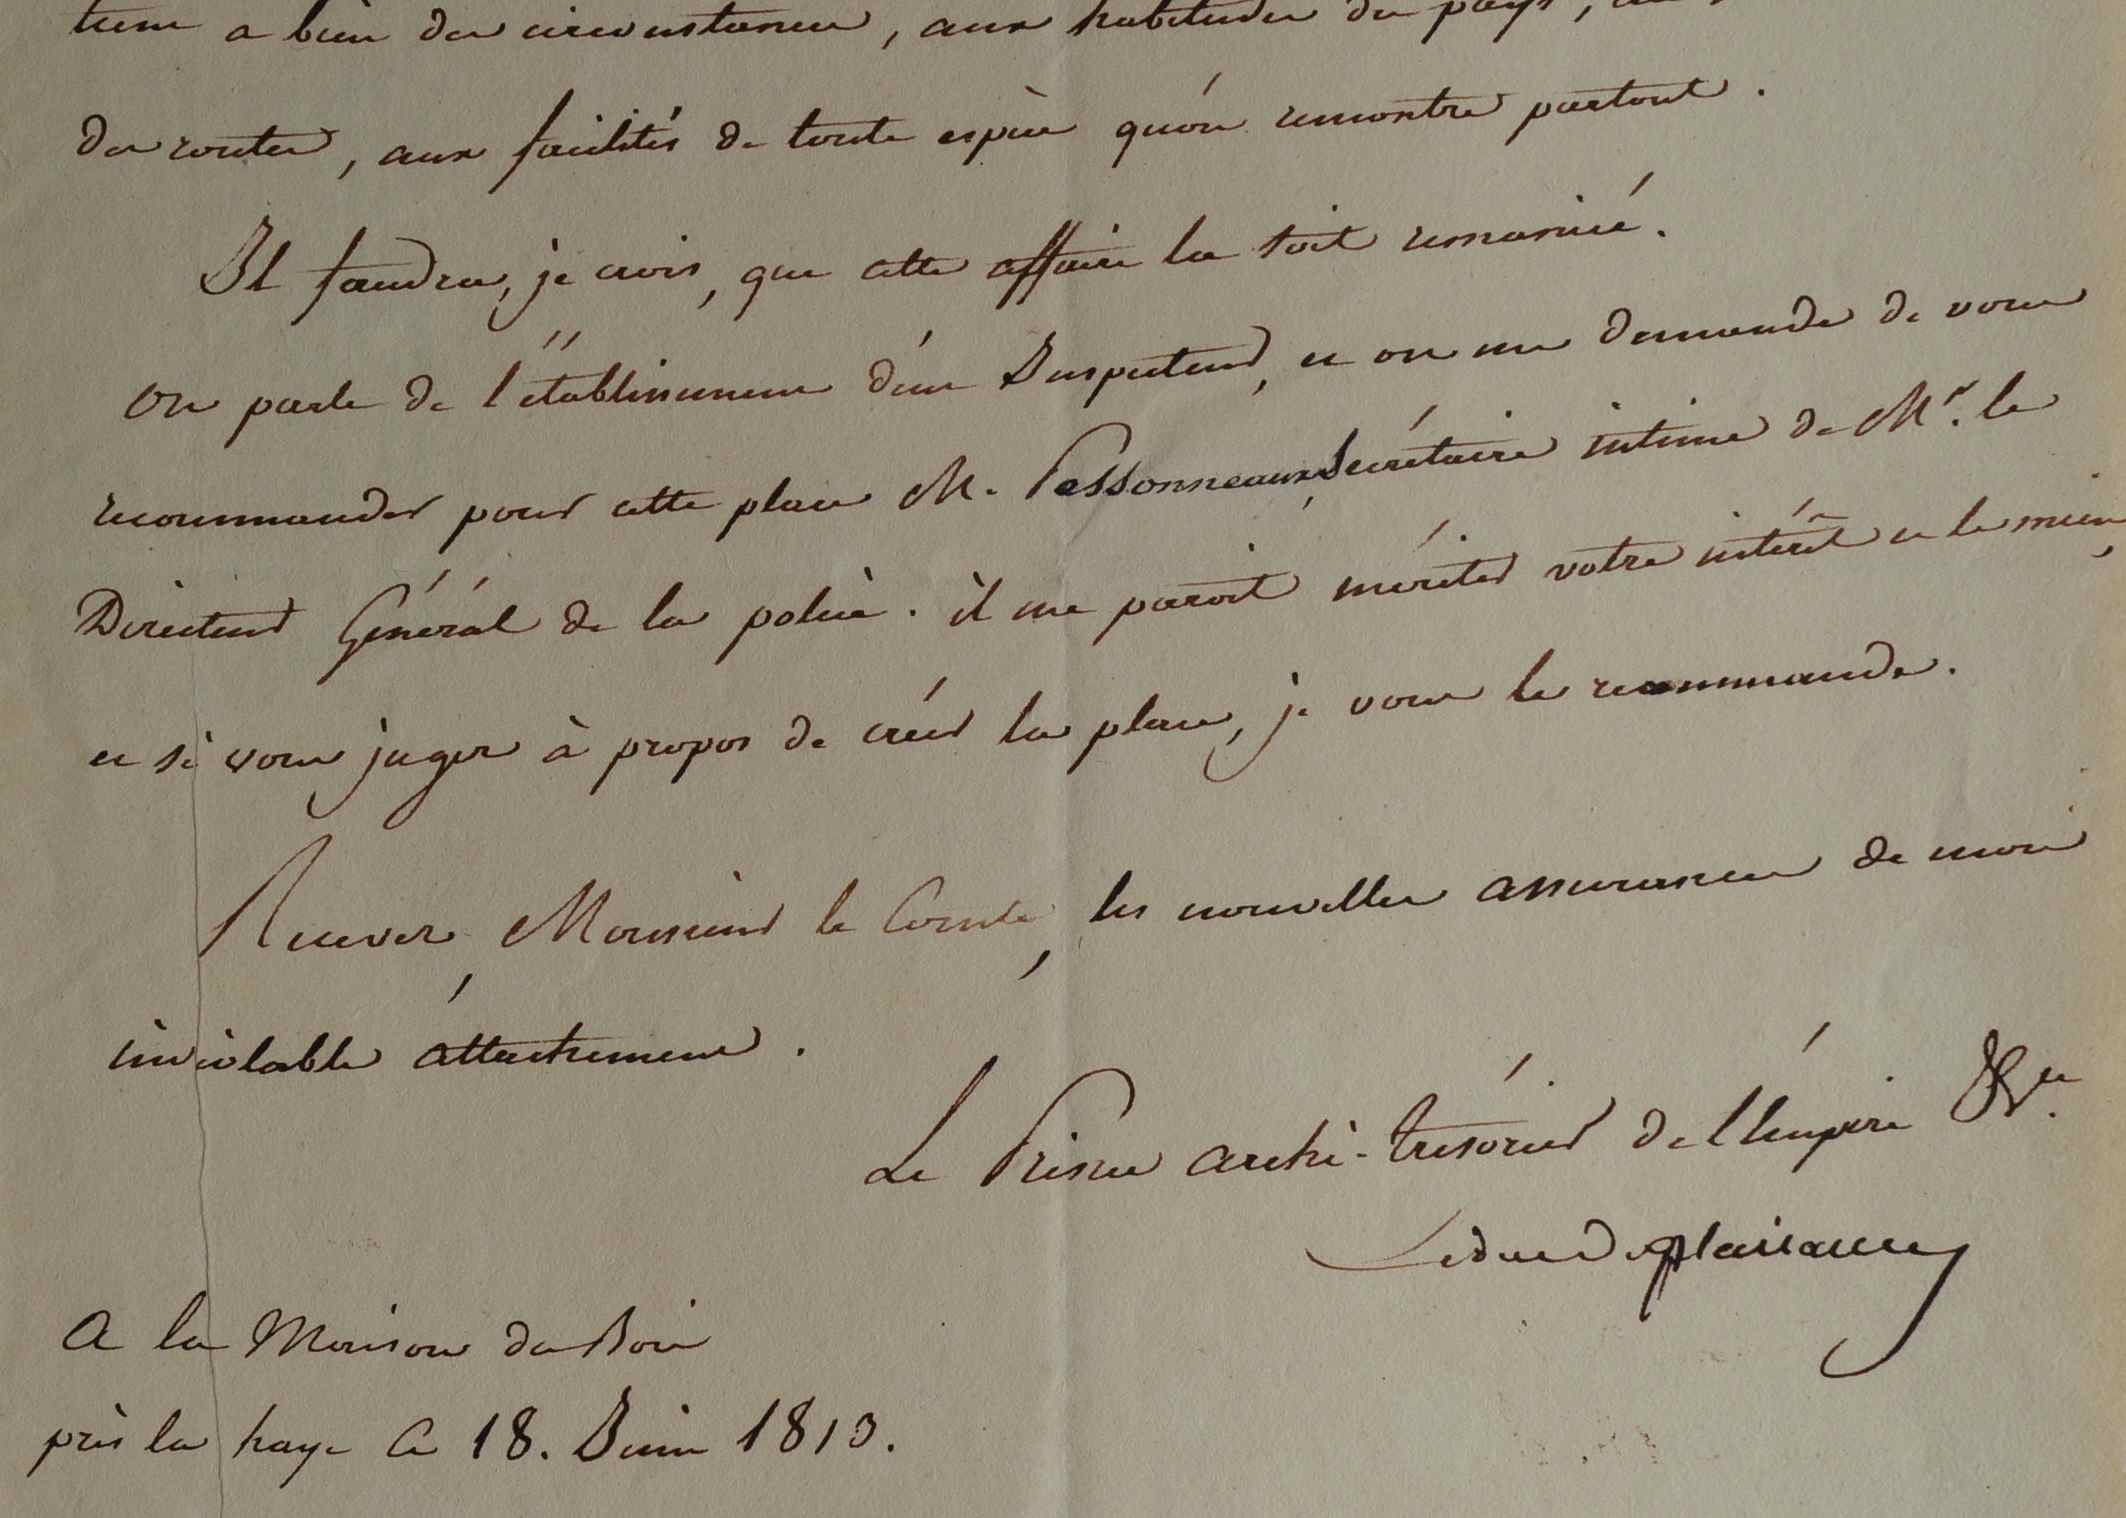 tient a bien des circonstances, aux habitudes du pays,
des routes, aux facilités de toute espèce qu'on rencontre partout.
Il faudra, je crois, que cette affaire la soit remaniée.
On parle de l'établissement d'un Inspecteur, et on me demande de vous
recommander pour cette place M. Pessonneaux, Secrétaire intime de Mr. le
Directeur Général de la police. il me paroit mériter votre intérêt et le mien,
et si vous jugez à propos de créer la place, je vous le recommande.
Recevez, Monsieur le Comte, les nouvelles assurances de mon
inviolable attachement.
Le Prince archi-trésorier de l'Empire &
Le duc de plaisance
A la Maison du Bois
près la haye Ce 18. Juin 1813.